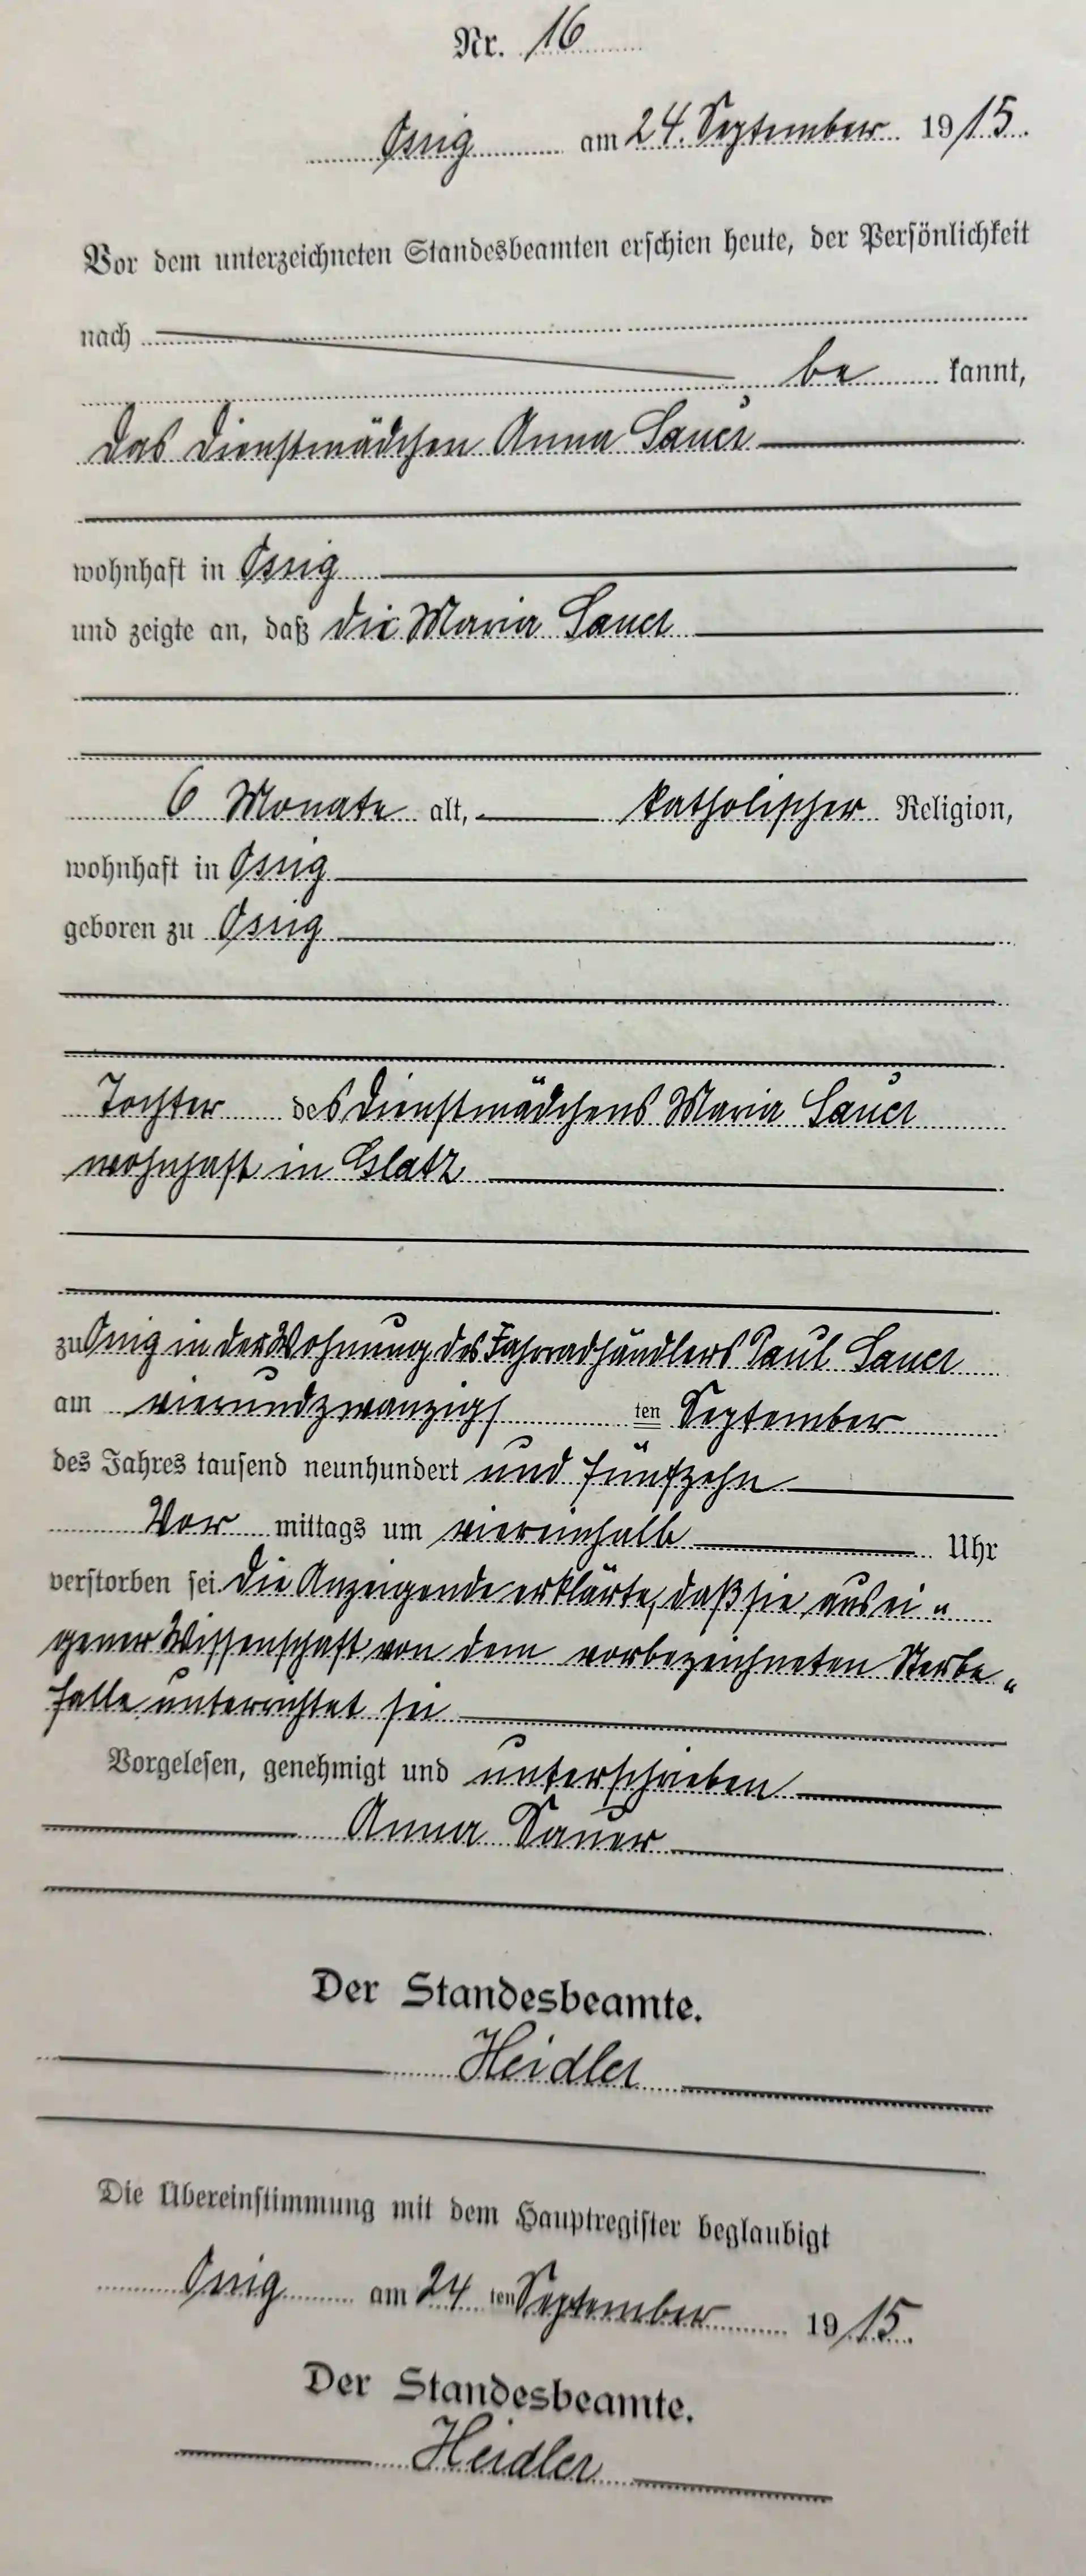 Nr. 16
Ossig am 24. September 1915.
Vor dem unterzeichneten Standesbeamten erschien heute, der Persönlichkeit
nach
be kannt,
das Dienstmädchen Anna Sauer
wohnhaft in Ossig
und zeigte an, daß die Maria Sauer
6 Monate alt, katholischer Religion,
wohnhaft in Ossig
geboren zu Ossig
Tochter des Dienstmädchens Maria Sauer
wohnhaft in Glatz
zu Ossig in der Wohnung des Fahrradhändlers Paul Sauer
am vierundzwanzigs ten September
des Jahres tausend neunhundert und fünfzehn
Vor mittags um viereinhalb Uhr
verstorben sei. Die Anzeigende erklärte, daß sie aus ei„
gener Wissenschaft von dem vorbezeichneten Sterbe„
falle unterrichtet sei
Vorgelesen, genehmigt und unterschrieben
Anna Sauer
Der Standesbeamte.
Heidler
Die Übereinstimmung mit dem Hauptregister beglaubigt
Ossig am 24 ten September 1915.
Der Standesbeamte.
Heidler